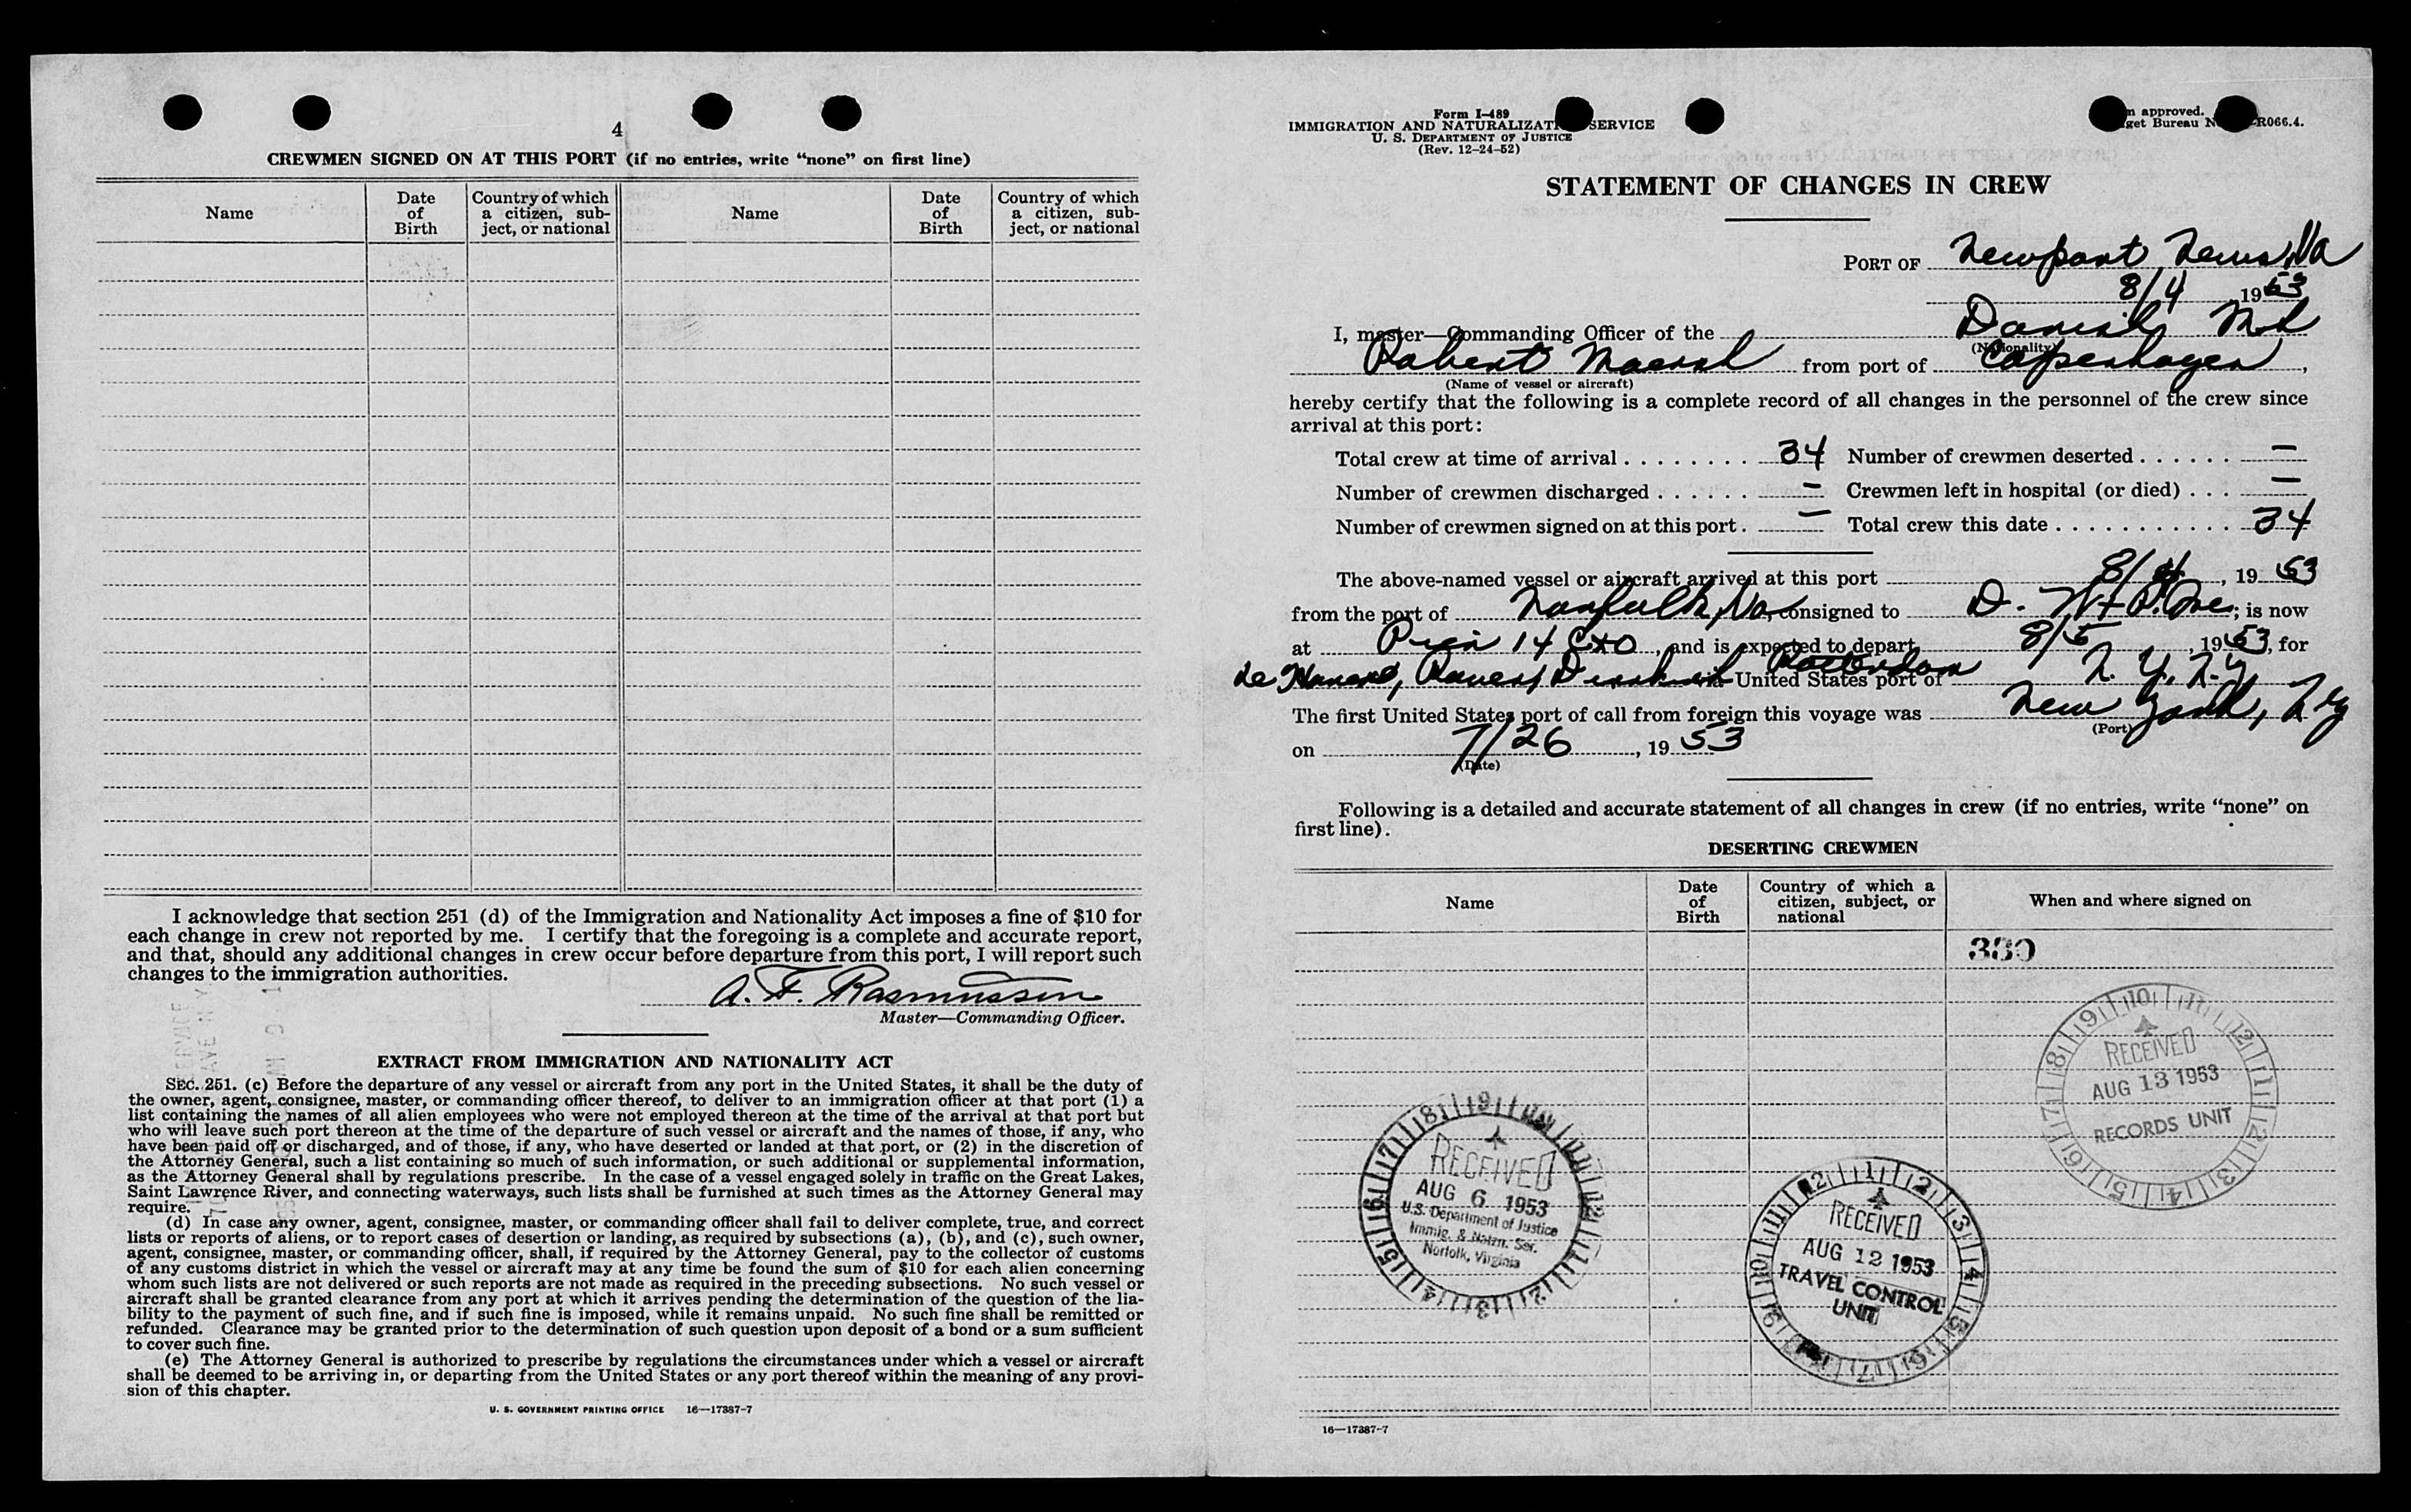 4
CREWMEN SIGNED ON AT THIS PORT (if no entries, write “none” on first line)
Name
Date of Birth
Country of which a citizen, subject, or national
Name
Date of Birth
Country of which a citizen, subject, or national
I acknowledge that section 251 (d) of the Immigration and Nationality Act imposes a fine of $10 for
each change in crew not reported by me. I certify that the foregoing is a complete and accurate report,
and that, should any additional changes in crew occur before departure from this port, I will report such
changes to the immigration authorities.
A. F. Rasmussen
Master—Commanding Officer.
EXTRACT FROM IMMIGRATION AND NATIONALITY ACT
SEC. 251. (c) Before the departure of any vessel or aircraft from any port in the United States, it shall be the duty of
the owner, agent, consignee, master, or commanding officer thereof, to deliver to an immigration officer at that port (1) a
list containing the names of all alien employees who were not employed thereon at the time of the arrival at that port but
who will leave such port thereon at the time of the departure of such vessel or aircraft and the names of those, if any, who
have been paid off or discharged, and of those, if any, who have deserted or landed at that port, or (2) in the discretion of
the Attorney General, such a list containing so much of such information, or such additional or supplemental information,
as the Attorney General shall by regulations prescribe. In the case of a vessel engaged solely in traffic on the Great Lakes,
Saint Lawrence River, and connecting waterways, such lists shall be furnished at such times as the Attorney General may
require.
(d) In case any owner, agent, consignee, master, or commanding officer shall fail to deliver complete, true, and correct
lists or reports of aliens, or to report cases of desertion or landing, as required by subsections (a), (b), and (c), such owner,
agent, consignee, master, or commanding officer, shall, if required by the Attorney General, pay to the collector of customs
of any customs district in which the vessel or aircraft may at any time be found the sum of $10 for each alien concerning
whom such lists are not delivered or such reports are not made as required in the preceding subsections. No such vessel or
aircraft shall be granted clearance from any port at which it arrives pending the determination of the question of the lia-
bility to the payment of such fine, and if such fine is imposed, while it remains unpaid. No such fine shall be remitted or
refunded. Clearance may be granted prior to the determination of such question upon deposit of a bond or a sum sufficient
to cover such fine.
(e) The Attorney General is authorized to prescribe by regulations the circumstances under which a vessel or aircraft
shall be deemed to be arriving in, or departing from the United States or any port thereof within the meaning of any provi-
sion of this chapter.
U. S. GOVERNMENT PRINTING OFFICE 16—17387-7
Form I-489
IMMIGRATION AND NATURALIZATI SERVICE
U. S. DEPARTMENT OF JUSTICE
(Rev. 12-24-52)
m approved.
get Bureau N R066.4.
STATEMENT OF CHANGES IN CREW
PORT OF Newport News, Va
8/4 1953
I, master—Commanding Officer of the Danish M.S.
(Nationality)
Robert Maersk from port of Copenhagen,
(Name of vessel or aircraft)
hereby certify that the following is a complete record of all changes in the personnel of the crew since
arrival at this port:
Total crew at time of arrival 34 Number of crewmen deserted —
Number of crewmen discharged — Crewmen left in hospital (or died) —
Number of crewmen signed on at this port. — Total crew this date 34
The above-named vessel or aircraft arrived at this port 8/4, 1953
from the port of Norfolk, Va, consigned to ; is now
at Pier 14 C+O, and is expected to depart 8/5, 1953, for
Le Havre, Rouen, Dunkirk Rotterdam via United States port of N. Y. N.Y.
The first United States port of call from foreign this voyage was New York, N Y
(Port)
on 7/26, 1953
(Date)
Following is a detailed and accurate statement of all changes in crew (if no entries, write “none” on
first line).
DESERTING CREWMEN
Name
Date of Birth
Country of which a citizen, subject, or national
When and where signed on
330
RECEIVED
AUG 13 1953
RECORDS UNIT
RECEIVED
AUG 6 1953
U.S. Department of Justice
Immig. & Natzn. Ser.
Norfolk, Virginia
RECEIVED
AUG 12 1953
TRAVEL CONTROL
UNIT
16—17387-7